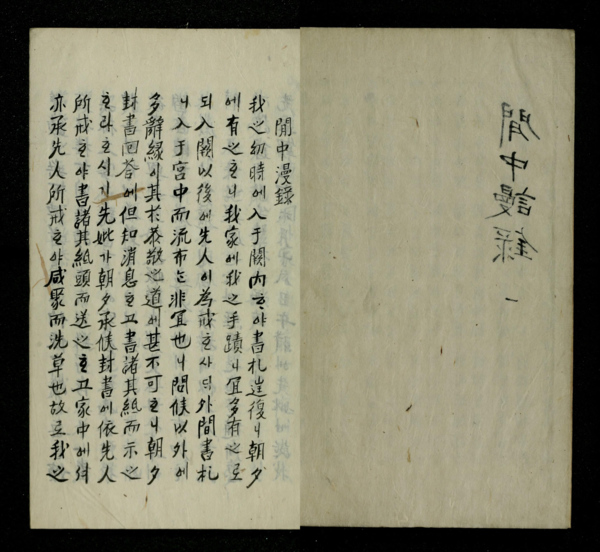 閒中謾錄 一
閒中漫錄
我之幼時에入于闕内ᄒᆞ야書札徃復이朝夕
에有之ᄒᆞ니我家에我之手蹟이宜多有之로
되入闕以後에先人이為戒ᄒᆞ사ᄃᆡ外間書札
이入于宮中而流布ᄂᆞᆫ非宜也ㅣ니問候以外에
多辭緣이其於恭敬之道에甚不可ᄒᆞ니朝夕
封書回答에但知消息ᄒᆞ고書諸其紙而示之
ᄒᆞ라ᄒᆞ시기先妣가朝夕承候封書에依先人
所戒ᄒᆞ야書諸其紙頭而送之ᄒᆞ고家中에셔
亦承先人所戒ᄒᆞ야咸聚而洗草也故로我之